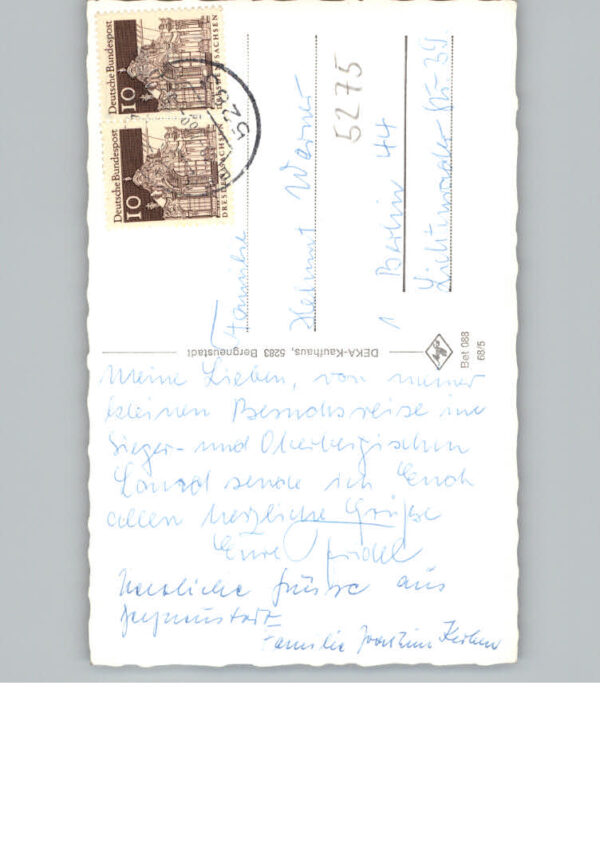 Meine Lieben, von meiner
kleinen Besuchsreise ins
Sieger- und Oberbergischen
Land sende ich Euch
allen herzliche Grüße
Eure Friedel
Herzliche Grüsse aus
Familie Joachim
DEKA-Kaufhaus, 5283 Bergneustadt
Bet 088
68/5
Familie
Helmut Warner
1 Berlin 44
Str. 39
5275
Deutsche Bundespost
10
DRESDEN/SACHSEN
Deutsche Bundespost
10
DRESDEN/SACHSEN